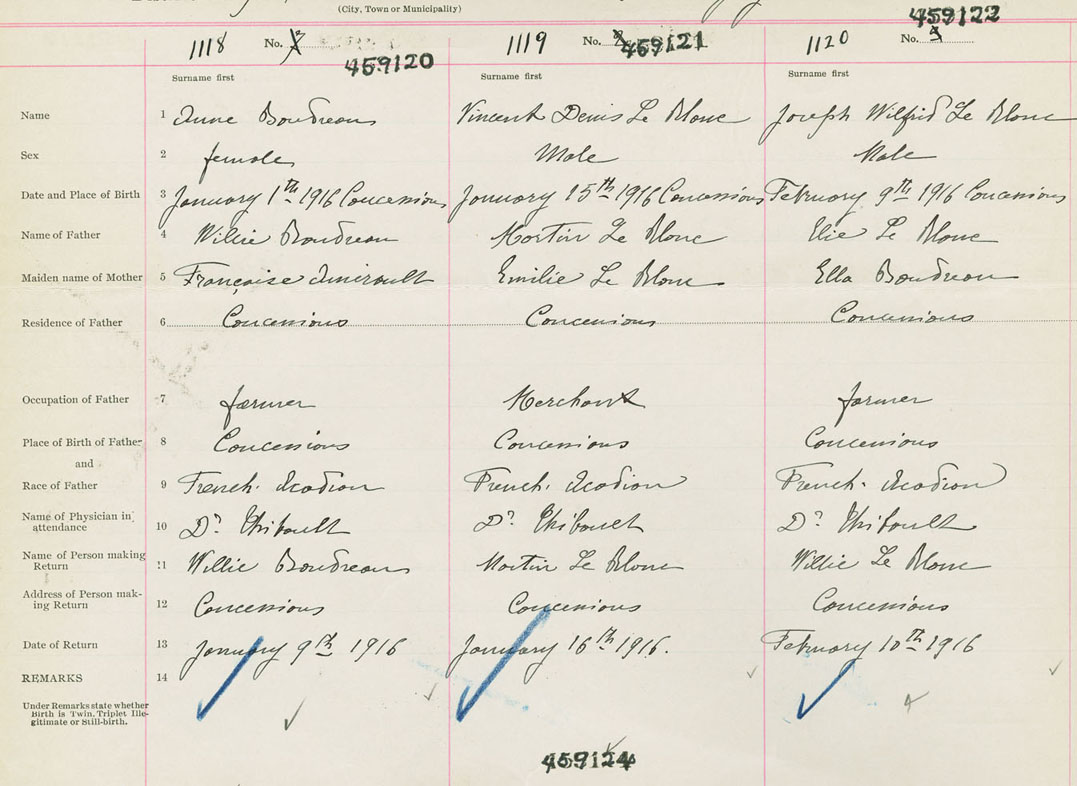 (City, Town or Municipality)
459122
1118 No. 1119 No. 459121 1120 No.
459120
Surname first Surname first Surname first
Name 1 Anne Boudreau Vincent Denis Le Blanc Joseph Wilfrid Le Blanc
Sex 2 female Male Male
Date and Place of Birth 3 January 1th 1916 Concessions January 15th 1916 Concessions February 9th 1916 Concessions
Name of Father 4 Willie Boudreau Martin Le Blanc Elie Le Blanc
Maiden name of Mother 5 Françoise Amirault Emilie Le Blanc Ella Boudreau
Residence of Father 6 Concessions Concessions Concessions
Occupation of Father 7 farmer Merchant farmer
Place of Birth of Father 8 Concessions Concessions Concessions
and
Race of Father 9 French. Acadian French. Acadian French. Acadian
Name of Physician in
attendance 10 Dr Thibault Dr Thibault Dr Thibault
Name of Person making
Return 11 Willie Boudreau Martin Le Blanc Willie Le Blanc
Address of Person mak-
ing Return 12 Concessions Concessions Concessions
Date of Return 13 January 9th 1916 January 16th 1916. February 10th 1916
REMARKS 14
Under Remarks state whether
Birth is Twin, Triplet Ille-
gitimate or Still-birth.
459124